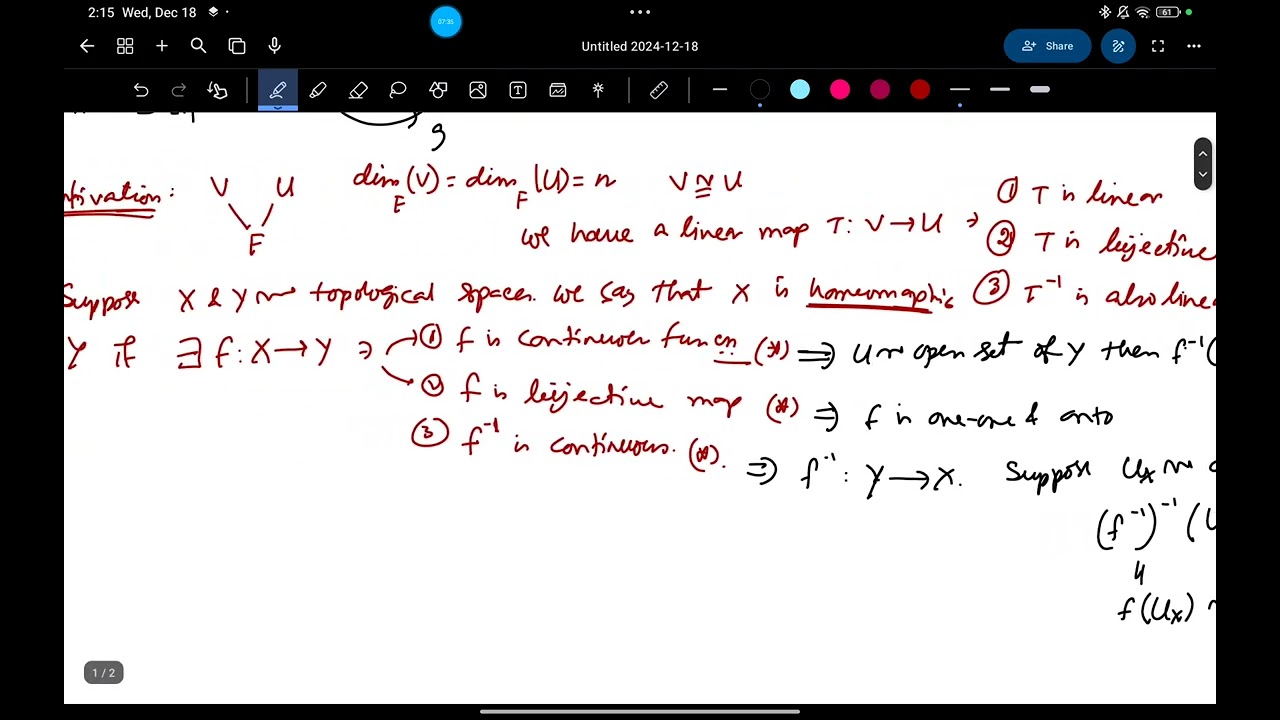 2:15 Wed, Dec 18
07:35
61
Untitled 2024-12-18
Share
g
tivation :
V U
F
dim_F (V) = dim_F (U) = n V ≅ U
we have a linear map T: V → U ∋
① T is linear
② T is bijective
③ T⁻¹ is also linea
Suppose X & Y ~ topological spaces. We say that X is homeomorphic
Y if ∃ f: X → Y ∋
① f is continuous funcn (*) ⇒ U ~ open set of Y then f⁻¹(
② f is bijective map (*) ⇒ f is one-one & onto
③ f⁻¹ is continuous. (*). ⇒ f⁻¹ : Y → X. Suppose Uₓ ~
(f⁻¹)⁻¹ (U
f(Uₓ) ~
1 / 2